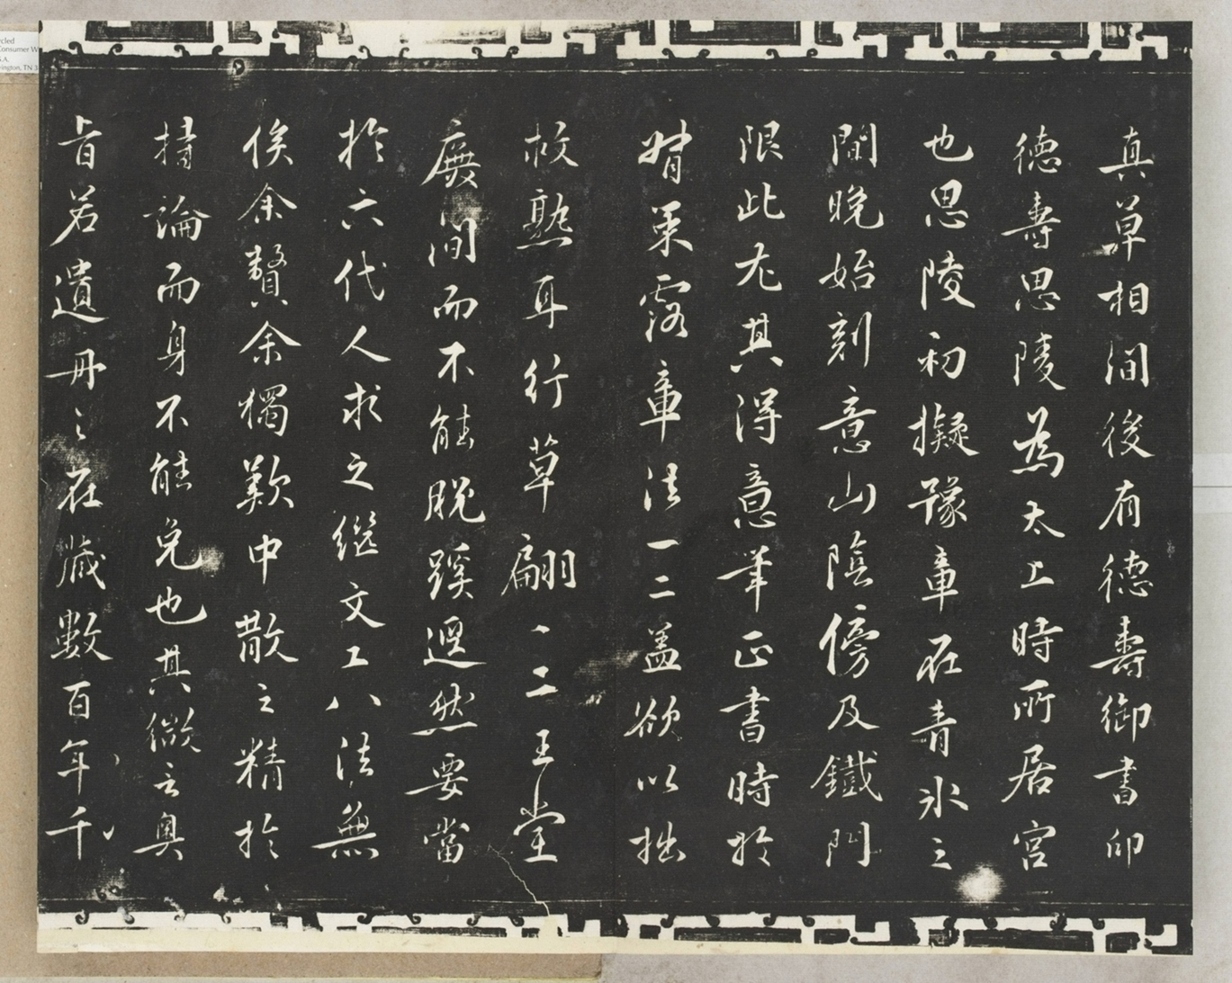 真草相間後有德壽御書印
德壽思陵為太上時所居宮
也思陵初擬豫章在青冰之
間晚始刻意山陰傍及鐵門
限此尤其得意筆正書時於
婿葉露章法一二盖欲以拙
救熟耳行草翩〻二王堂
廡間而不能脫蹊逕然要當
於六代人求之繼文工八法無
俟余贅余獨歎中散之精於
持論而身不能免也其微言奧
旨若遺冊之在藏數百年千
cycled
Consumer W
S.A.